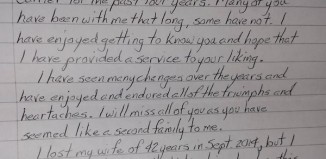 for the past four years. Many of you
have been with me that long, some have not. I
have enjoyed getting to know you and hope that
I have provided a service to your liking.
I have seen many changes over the years and
have enjoyed and endured all of the triumphs and
heartaches. I will miss all of you as you have
seemed like a second family to me.
I lost my wife of 42 years in Sept. 2014, but I